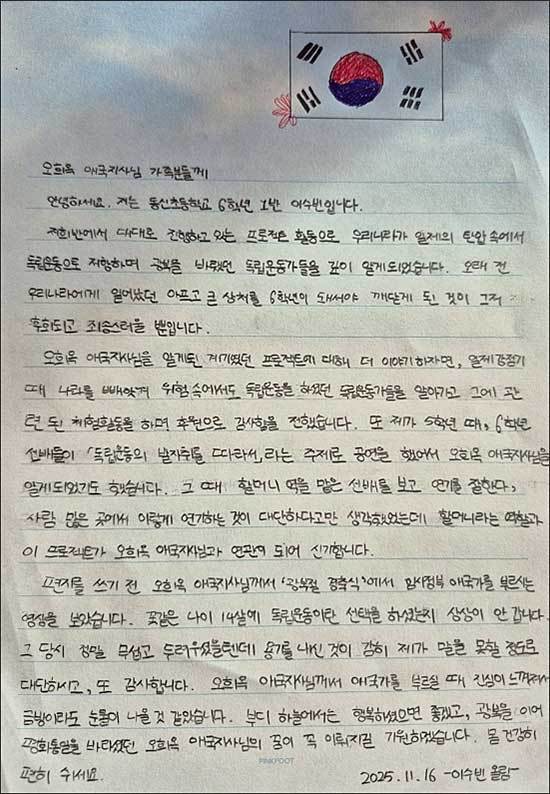 오희옥 애국지사님 가족분들께
안녕하세요. 저는 동신초등학교 6학년 1반 이수빈입니다.
저희반에서 대대로 진행하고 있는 프로젝트 활동으로 우리나라가 일제의 탄압 속에서
독립운동으로 저항하며 광복을 바랬던 독립운동가들을 깊이 알게되었습니다. 오래 전
우리나라에게 일어났던 아프고 큰 상처를 6학년이 돼서야 깨닫게 된 것이 그저
후회되고 죄송스러울 뿐입니다.
오희옥 애국지사님을 알게된 계기였던 프로젝트에 대해 더 이야기하자면, 일제강점기
때 나라를 빼앗겨 위험 속에서도 독립운동을 하였던 독립운동가들을 알아가고 그에 관
련 된 체험활동을 하며 후원으로 감사함을 전했습니다. 또 제가 5학년 때, 6학년
선배들이 '독립운동의 발자취를 따라서'라는 주제로 공연을 했어서 오희옥 애국지사님을
알게되었기도 했습니다. 그 때 할머니 역을 맡은 선배를 보고 연기를 잘한다,
사람 많은 곳에서 이렇게 연기하는 것이 대단하다고만 생각했었는데 할머니라는 역할과
이 프로젝트가 오희옥 애국지사님과 연관이 되어 신기합니다.
편지를 쓰기 전 오희옥 애국지사님께서 '광복절 경축식'에서 임시정부 애국가를 부르시는
영상을 보았습니다. 꽃같은 나이 14살에 독립운동이란 선택을 하셨는지 상상이 안 갑니다.
그 당시 정말 무섭고 두려우셨을텐데 용기를 내신 것이 감히 제가 말을 못할 정도로
대단하시고, 또 감사합니다. 오희옥 애국지사님께서 애국가를 부르실 때 진심이 느껴져서
금방이라도 눈물이 나올 것 같았습니다. 부디 하늘에서는 행복하셨으면 좋겠고, 광복을 이어
평화통일을 바라셨던 오희옥 애국지사님의 꿈이 꼭 이뤄지길 기원하겠습니다. 몸 건강히
편히 쉬세요.
2025.11.16 -이수빈 올림-
PINKFOOT